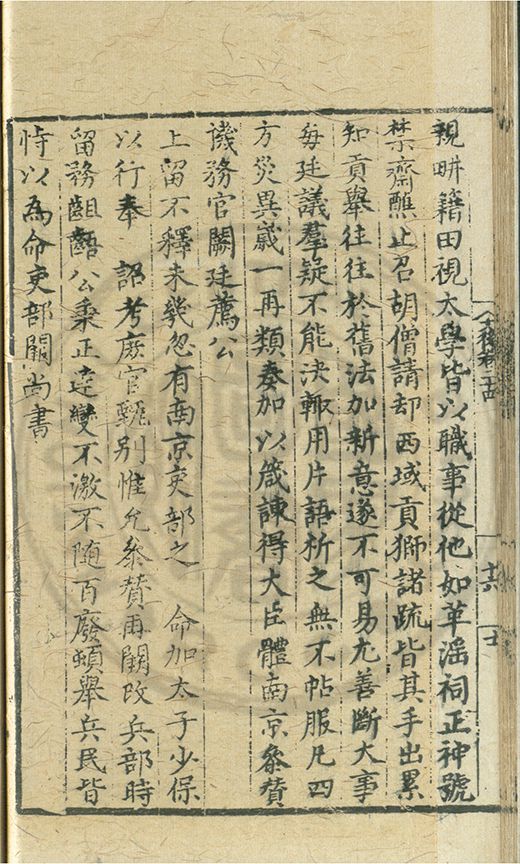 親畊籍田視太學皆以職事從他如革滛祠正神號
禁齋醮止召胡僧請却西域貢獅諸疏皆其手出累
知貢舉往往於舊法加新意遂不可易尤善斷大事
每廷議羣疑不能決輙用片語析之無不帖服凡四
方災異嵗一再類奏加以箴諫得大臣體南京叅賛
機務官闕廷薦公
上留不釋未幾忽有南京吏部之 命加太子少保
以行奉 詔考庶官甄别惟允叅賛再闕改兵部時
留務齟齬公秉正達變不激不随百廢頓舉兵民皆
恃以為命吏部闕尚書
十六